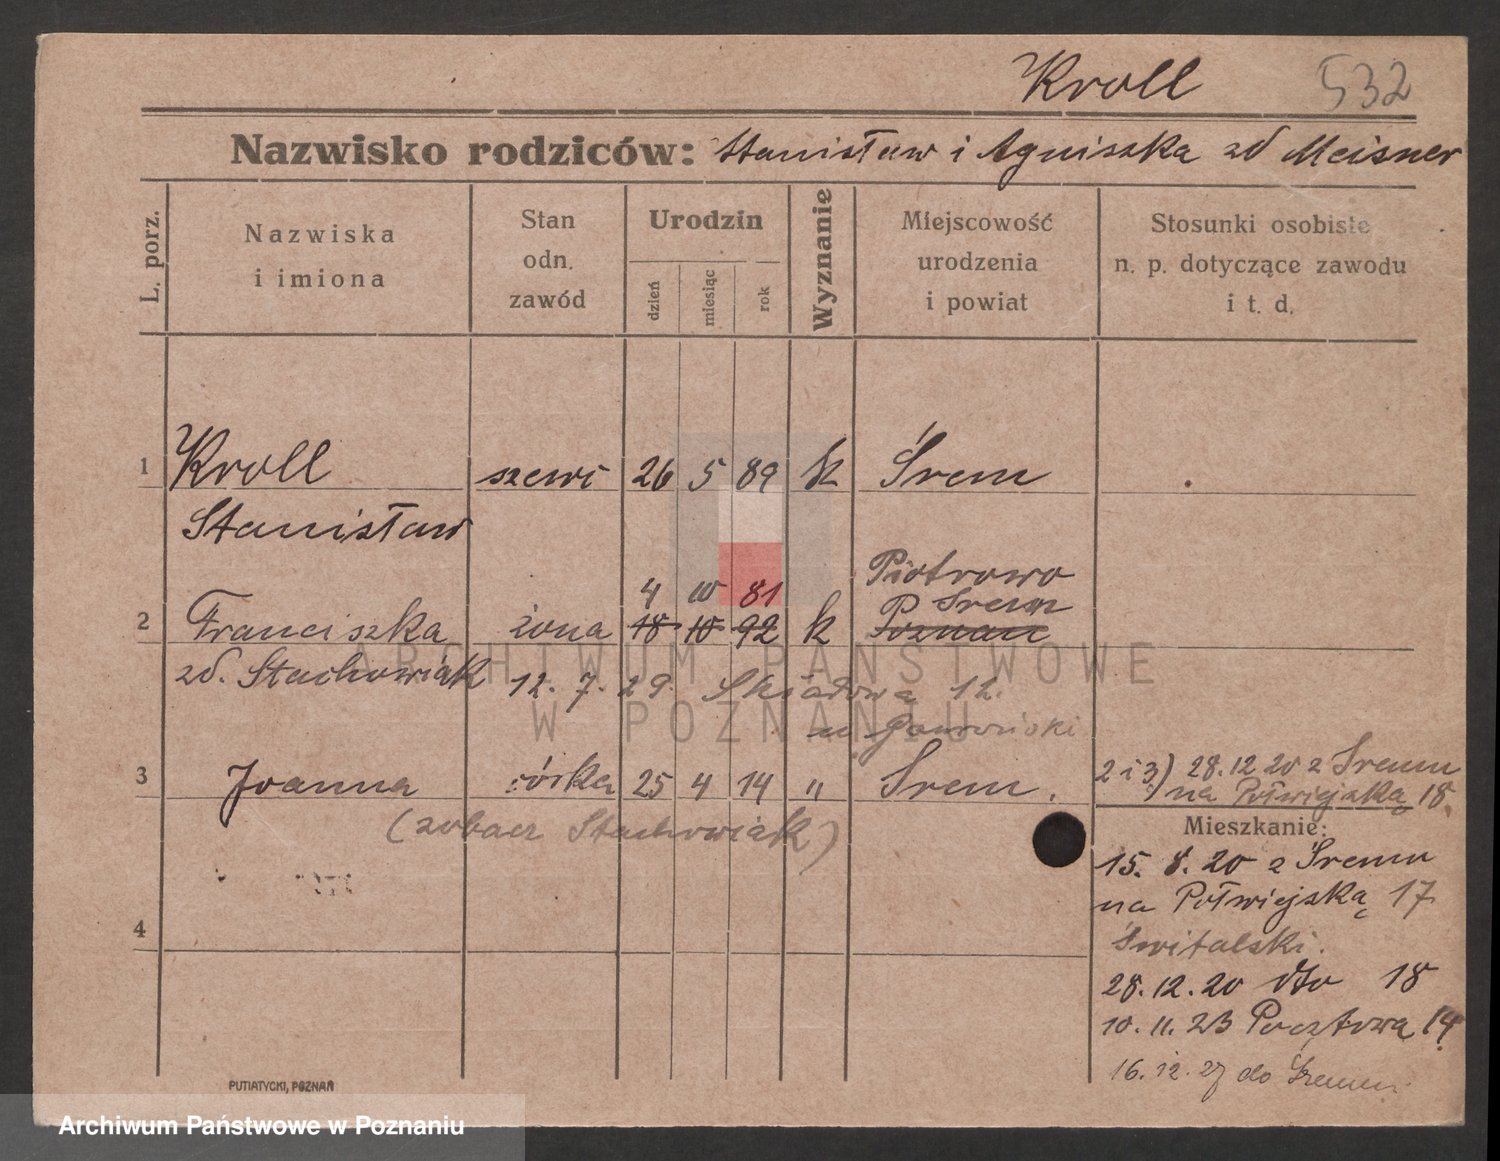 Kroll 532
Nazwisko rodziców: Stanisław i Agniszka zd Meisner
L. porz.
Nazwiska
i imiona
Stan
odn.
zawód
Urodzin
dzień
miesiąc
rok
Wyznanie
Miejscowość
urodzenia
i powiat
Stosunki osobiste
n. p. dotyczące zawodu
i t. d.
1 Kroll szewc 26 5 89 k Śrem
Stanisław
4 10 81 Piotrowo
P Srem
2 Franciszka żona 18 10 92 k Poznań
zd. Stachowiak 12. 7. 29. Składowa 12.
u
3 Joanna córka 25 4 14 " Śrem.
2 i 3) 28.12 20 z Sremu
na Półwiejską 18.
(zobacz Stachowiak)
Mieszkanie:
15. 8. 20 z Sremu
na Półwiejską 17
Świtalski.
4
28.12.20 dto 18
10. 11. 23 Pocztowa 14
16. 12. 27 do Sremu
PUTIATYCKI, POZNAŃ
ARCHIWUM PAŃSTWOWE
W POZNANIU
Archiwum Państwowe w Poznaniu